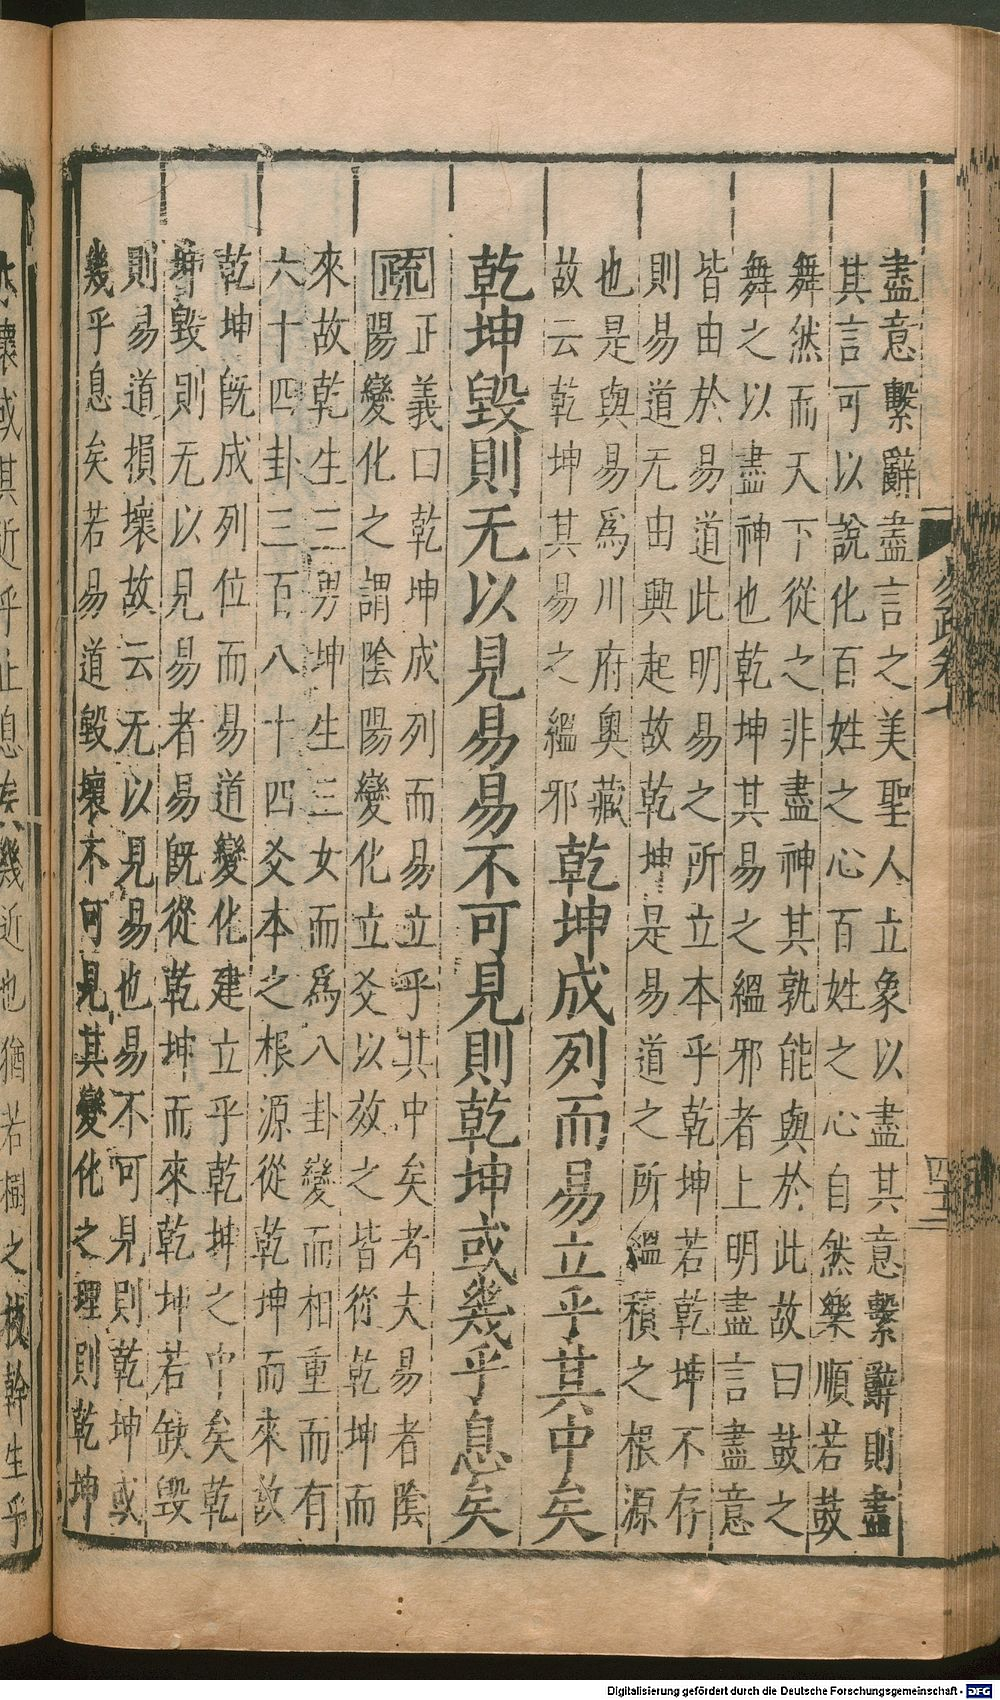 盡意繫辭盡言之美聖人立象以盡其意繫辭則盡
其言可以說化百姓之心百姓之心自然樂順若鼓
舞然而天下從之非盡神其孰能與於此故曰鼓之
舞之以盡神也乾坤其易之縕邪者上明盡言盡意
皆由於易道此明易之所立本乎乾坤若乾坤不存
則易道无由興起故乾坤是易道之所縕積之根源
也是與易為川府奧藏
故云乾坤其易之縕邪
乾坤成列而易立乎其中矣
乾坤毀則无以見易易不可見則乾坤或幾乎息矣
疏
正義曰乾坤成列而易立乎其中矣者夫易者陰
陽變化之謂陰陽變化立爻以效之皆從乾坤而
來故乾生三男坤生三女而為八卦變而相重而有
六十四卦三百八十四爻本之根源從乾坤而來故
乾坤既成列位而易道變化建立乎乾坤之中矣乾
坤毀則无以見易者易既從乾坤而來乾坤若缺毀
則易道損壞故云无以見易也易不可見則乾坤或
幾乎息矣若易道毀壞不可見其變化之理則乾坤
易疏卷七
壞或其近乎止息矣幾近也猶若樹之枝幹生乎
Digitalisierung gefördert durch die Deutsche Forschungsgemeinschaft - DFG